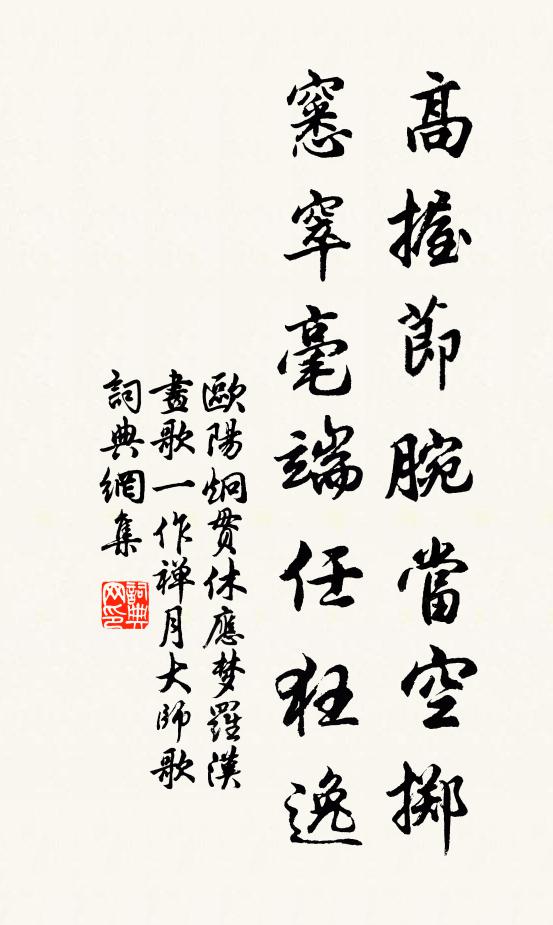 高握莭腕當空擲
窸窣毫端任狂逸
歐陽炯貫休應梦羅漢
畫歌一作禅月大師歌
詞典網集
詞典
网印